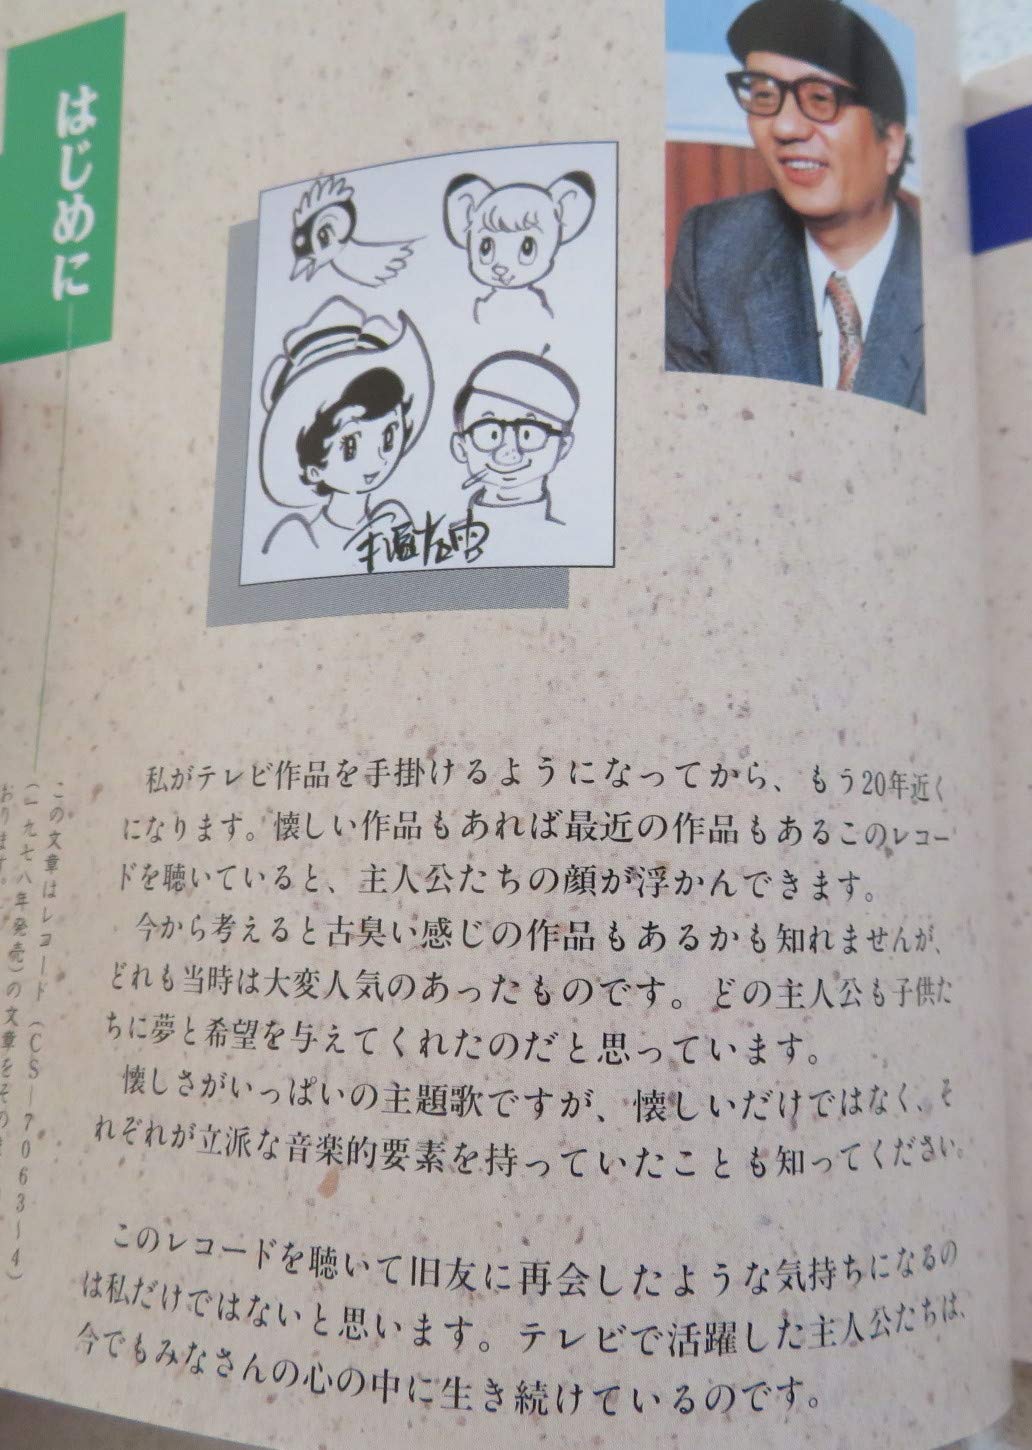 はじめに
手塚治虫
私がテレビ作品を手掛けるようになってから、もう20年近く
になります。懐しい作品もあれば最近の作品もあるこのレコー
ドを聴いていると、主人公たちの顔が浮かんできます。
今から考えると古臭い感じの作品もあるかも知れませんが、
どれも当時は大変人気のあったものです。どの主人公も子供た
ちに夢と希望を与えてくれたのだと思っています。
懐しさがいっぱいの主題歌ですが、懐しいだけではなく、そ
れぞれが立派な音楽的要素を持っていたことも知ってください。
このレコードを聴いて旧友に再会したような気持ちになるの
は私だけではないと思います。テレビで活躍した主人公たちは、
今でもみなさんの心の中に生き続けているのです。
この文章はレコード（CS-7063~4）
（一九七八年発売）の文章をそのま
おります。